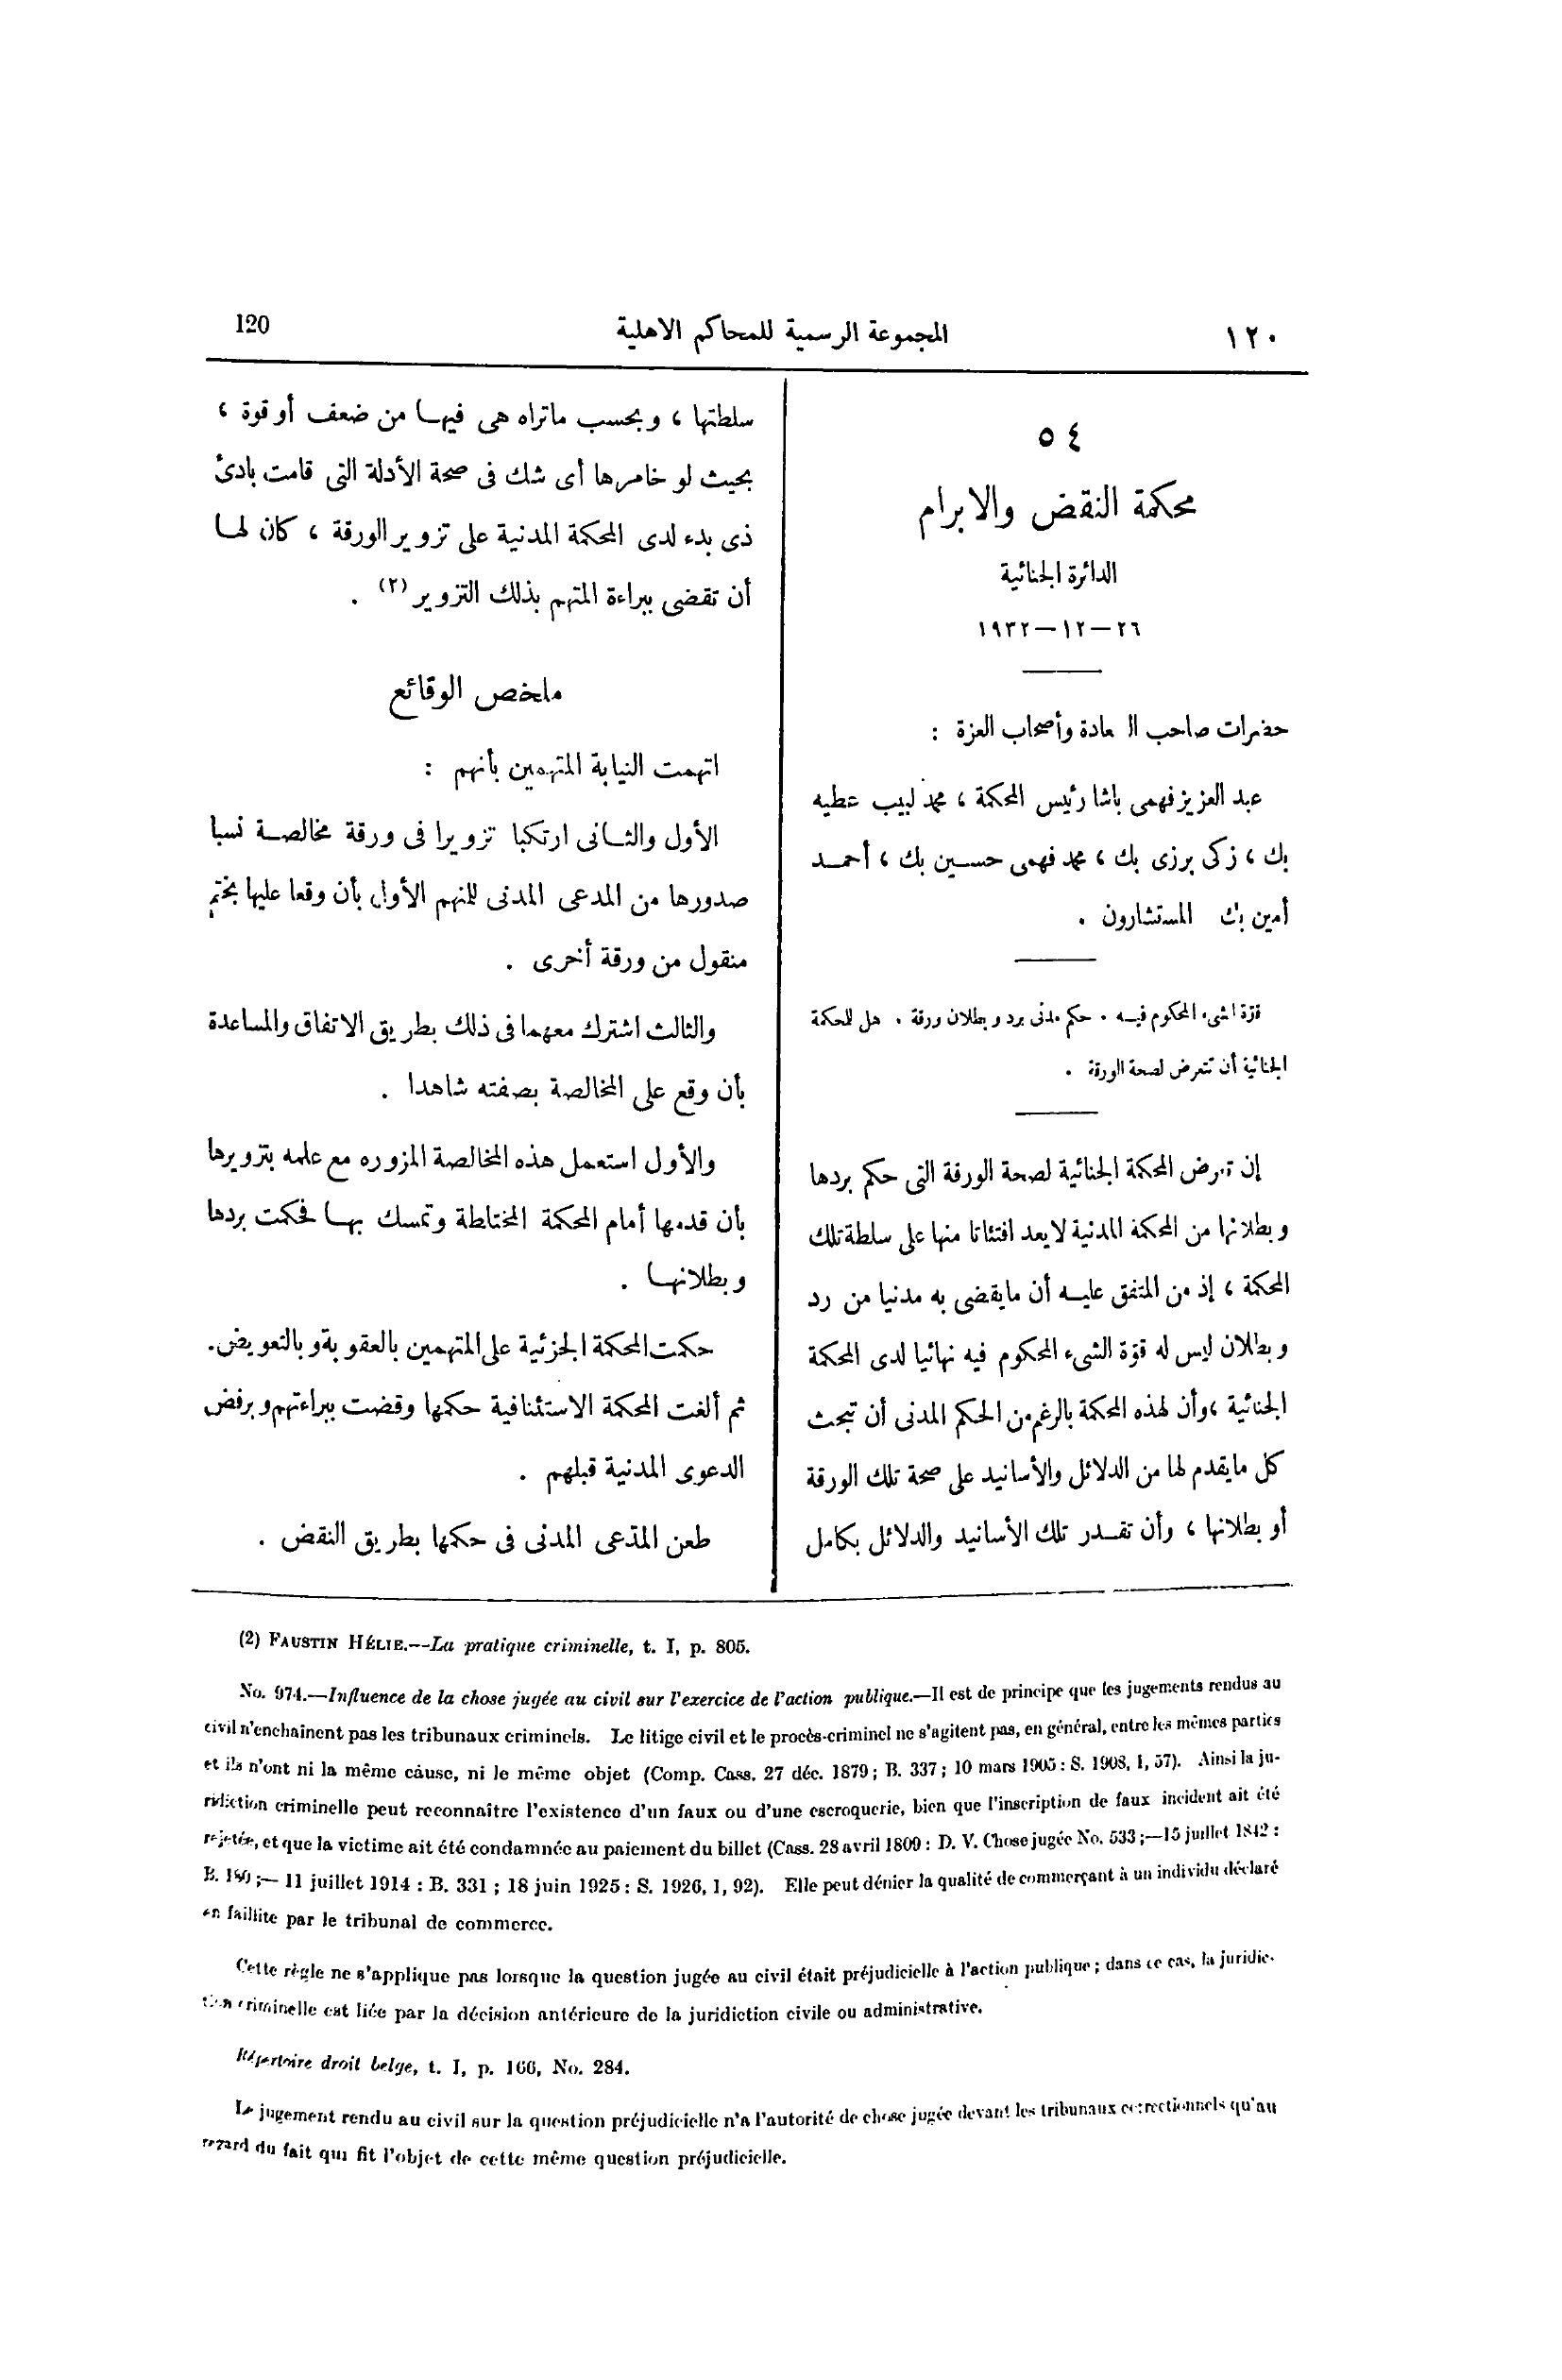 ١٢٠
المجموعة الرسمية للمحاكم الاهلية
120
٥٤
محكمة النقض والابرام
الدائرة الجنائية
٢٦-١٢-١٩٣٢
حضرات صاحب السعادة وأصحاب العزة :
عبد العزيز فهمى باشا رئيس المحكمة ، محمد لبيب عطيه
بك ، زكى برزى بك ، محمد فهمى حسين بك ، أحمد
أمين بك المستشارون .
قوّة الشىء المحكوم فيه . حكم مدنى برد وبطلان ورقة . هل للمحكمة
الجنائية أن تتعرض لصحة الورقة .
إن تعرض المحكمة الجنائية لصحة الورقة التى حكم بردها
وبطلانها من المحكمة المدنية لا يعد افتئاتا منها على سلطة تلك
المحكمة ، إذ من المتفق عليه أن مايقضى به مدنيا من رد
وبطلان ليس له قوّة الشىء المحكوم فيه نهائيا لدى المحكمة
الجنائية ، وأن لهذه المحكمة بالرغم من الحكم المدنى أن تبحث
كل مايقدم لها من الدلائل والأسانيد على صحة تلك الورقة
أو بطلانها ، وأن تقدر تلك الأسانيد والدلائل بكامل
سلطتها ، وبحسب ماتراه هى فيها من ضعف أو قوة ،
بحيث لو خامرها أى شك فى صحة الأدلة التى قامت بادئ
ذى بدء لدى المحكمة المدنية على تزوير الورقة ، كان لها
أن تقضى ببراءة المتهم بذلك التزوير (٢) .
ملخص الوقائع
اتهمت النيابة المتهمين بأنهم :
الأول والثانى ارتكبا تزويرا فى ورقة مخالصة نسبا
صدورها من المدعى المدنى للمتهم الأول بأن وقعا عليها بختم
منقول من ورقة أخرى .
والثالث اشترك معهما فى ذلك بطريق الاتفاق والمساعدة
بأن وقع على المخالصة بصفته شاهدا .
والأول استعمل هذه المخالصة المزوره مع علمه بتزويرها
بأن قدمها أمام المحكمة المختلطة وتمسك بها فحكمت بردها
وبطلانها .
حكمت المحكمة الجزئية على المتهمين بالعقوبة وبالتعويض.
ثم ألغت المحكمة الاستئنافية حكمها وقضت ببراءتهم وبرفض
الدعوى المدنية قبلهم .
طعن المدّعى المدنى فى حكمها بطريق النقض .
(2) FAUSTIN HÉLIE.--La pratique criminelle, t. I, p. 805.
No. 974.—Influence de la chose jugée au civil sur l'exercice de l'action publique.—Il est de principe que les jugements rendus au
civil n'enchaînent pas les tribunaux criminels. Le litige civil et le procès-criminel ne s'agitent pas, en général, entre les mêmes parties
et ils n'ont ni la même cause, ni le même objet (Comp. Cass. 27 déc. 1879 ; B. 337 ; 10 mars 1905 : S. 1908, 1, 57). Ainsi la ju-
ridiction criminelle peut reconnaître l'existence d'un faux ou d'une escroquerie, bien que l'inscription de faux incident ait été
rejetée, et que la victime ait été condamnée au paiement du billet (Cass. 28 avril 1809 : D. V. Chose jugée No. 533 ;—15 juillet 1842 :
B. 180 ;— 11 juillet 1914 : B. 331 ; 18 juin 1925 : S. 1926, 1, 92). Elle peut dénier la qualité de commerçant à un individu déclaré
en faillite par le tribunal de commerce.
Cette règle ne s'applique pas lorsque la question jugée au civil était préjudicielle à l'action publique ; dans ce cas, la juridic-
tion criminelle est liée par la décision antérieure de la juridiction civile ou administrative.
Répertoire droit belge, t. I, p. 166, No. 284.
Le jugement rendu au civil sur la question préjudicielle n'a l'autorité de chose jugée devant les tribunaux correctionnels qu'au
regard du fait qui fit l'objet de cette même question préjudicielle.